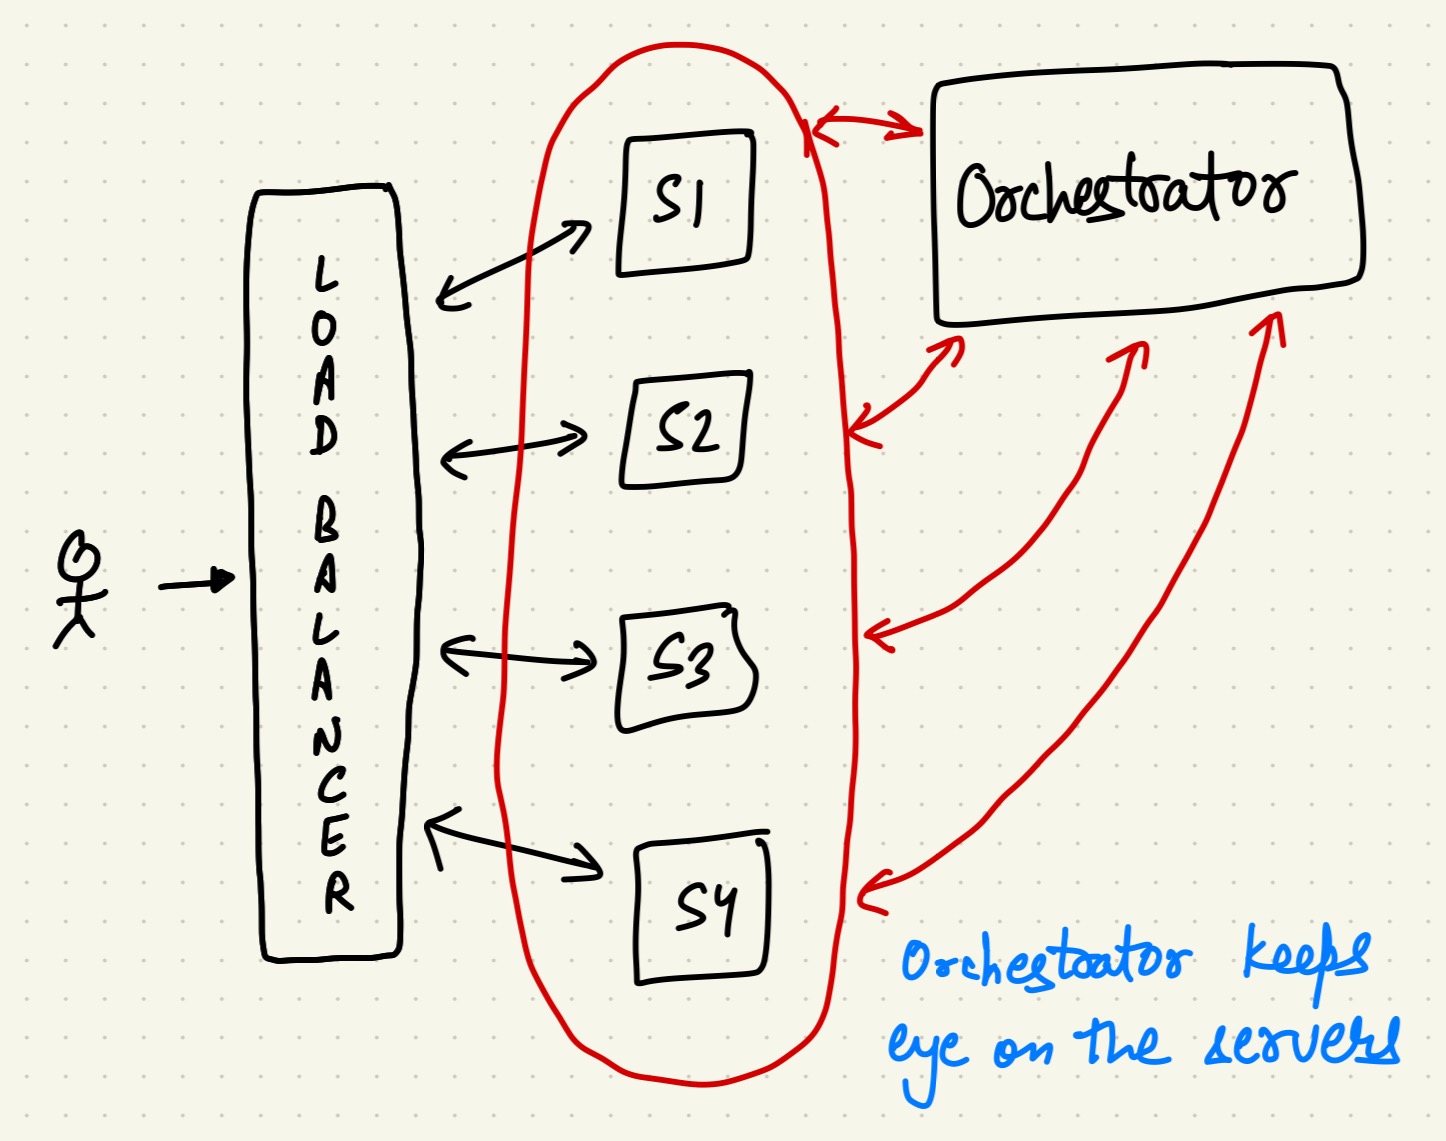 LOAD BALANCER
S1
S2
S3
S4
Orchestrator
Orchestrator keeps
eye on the servers